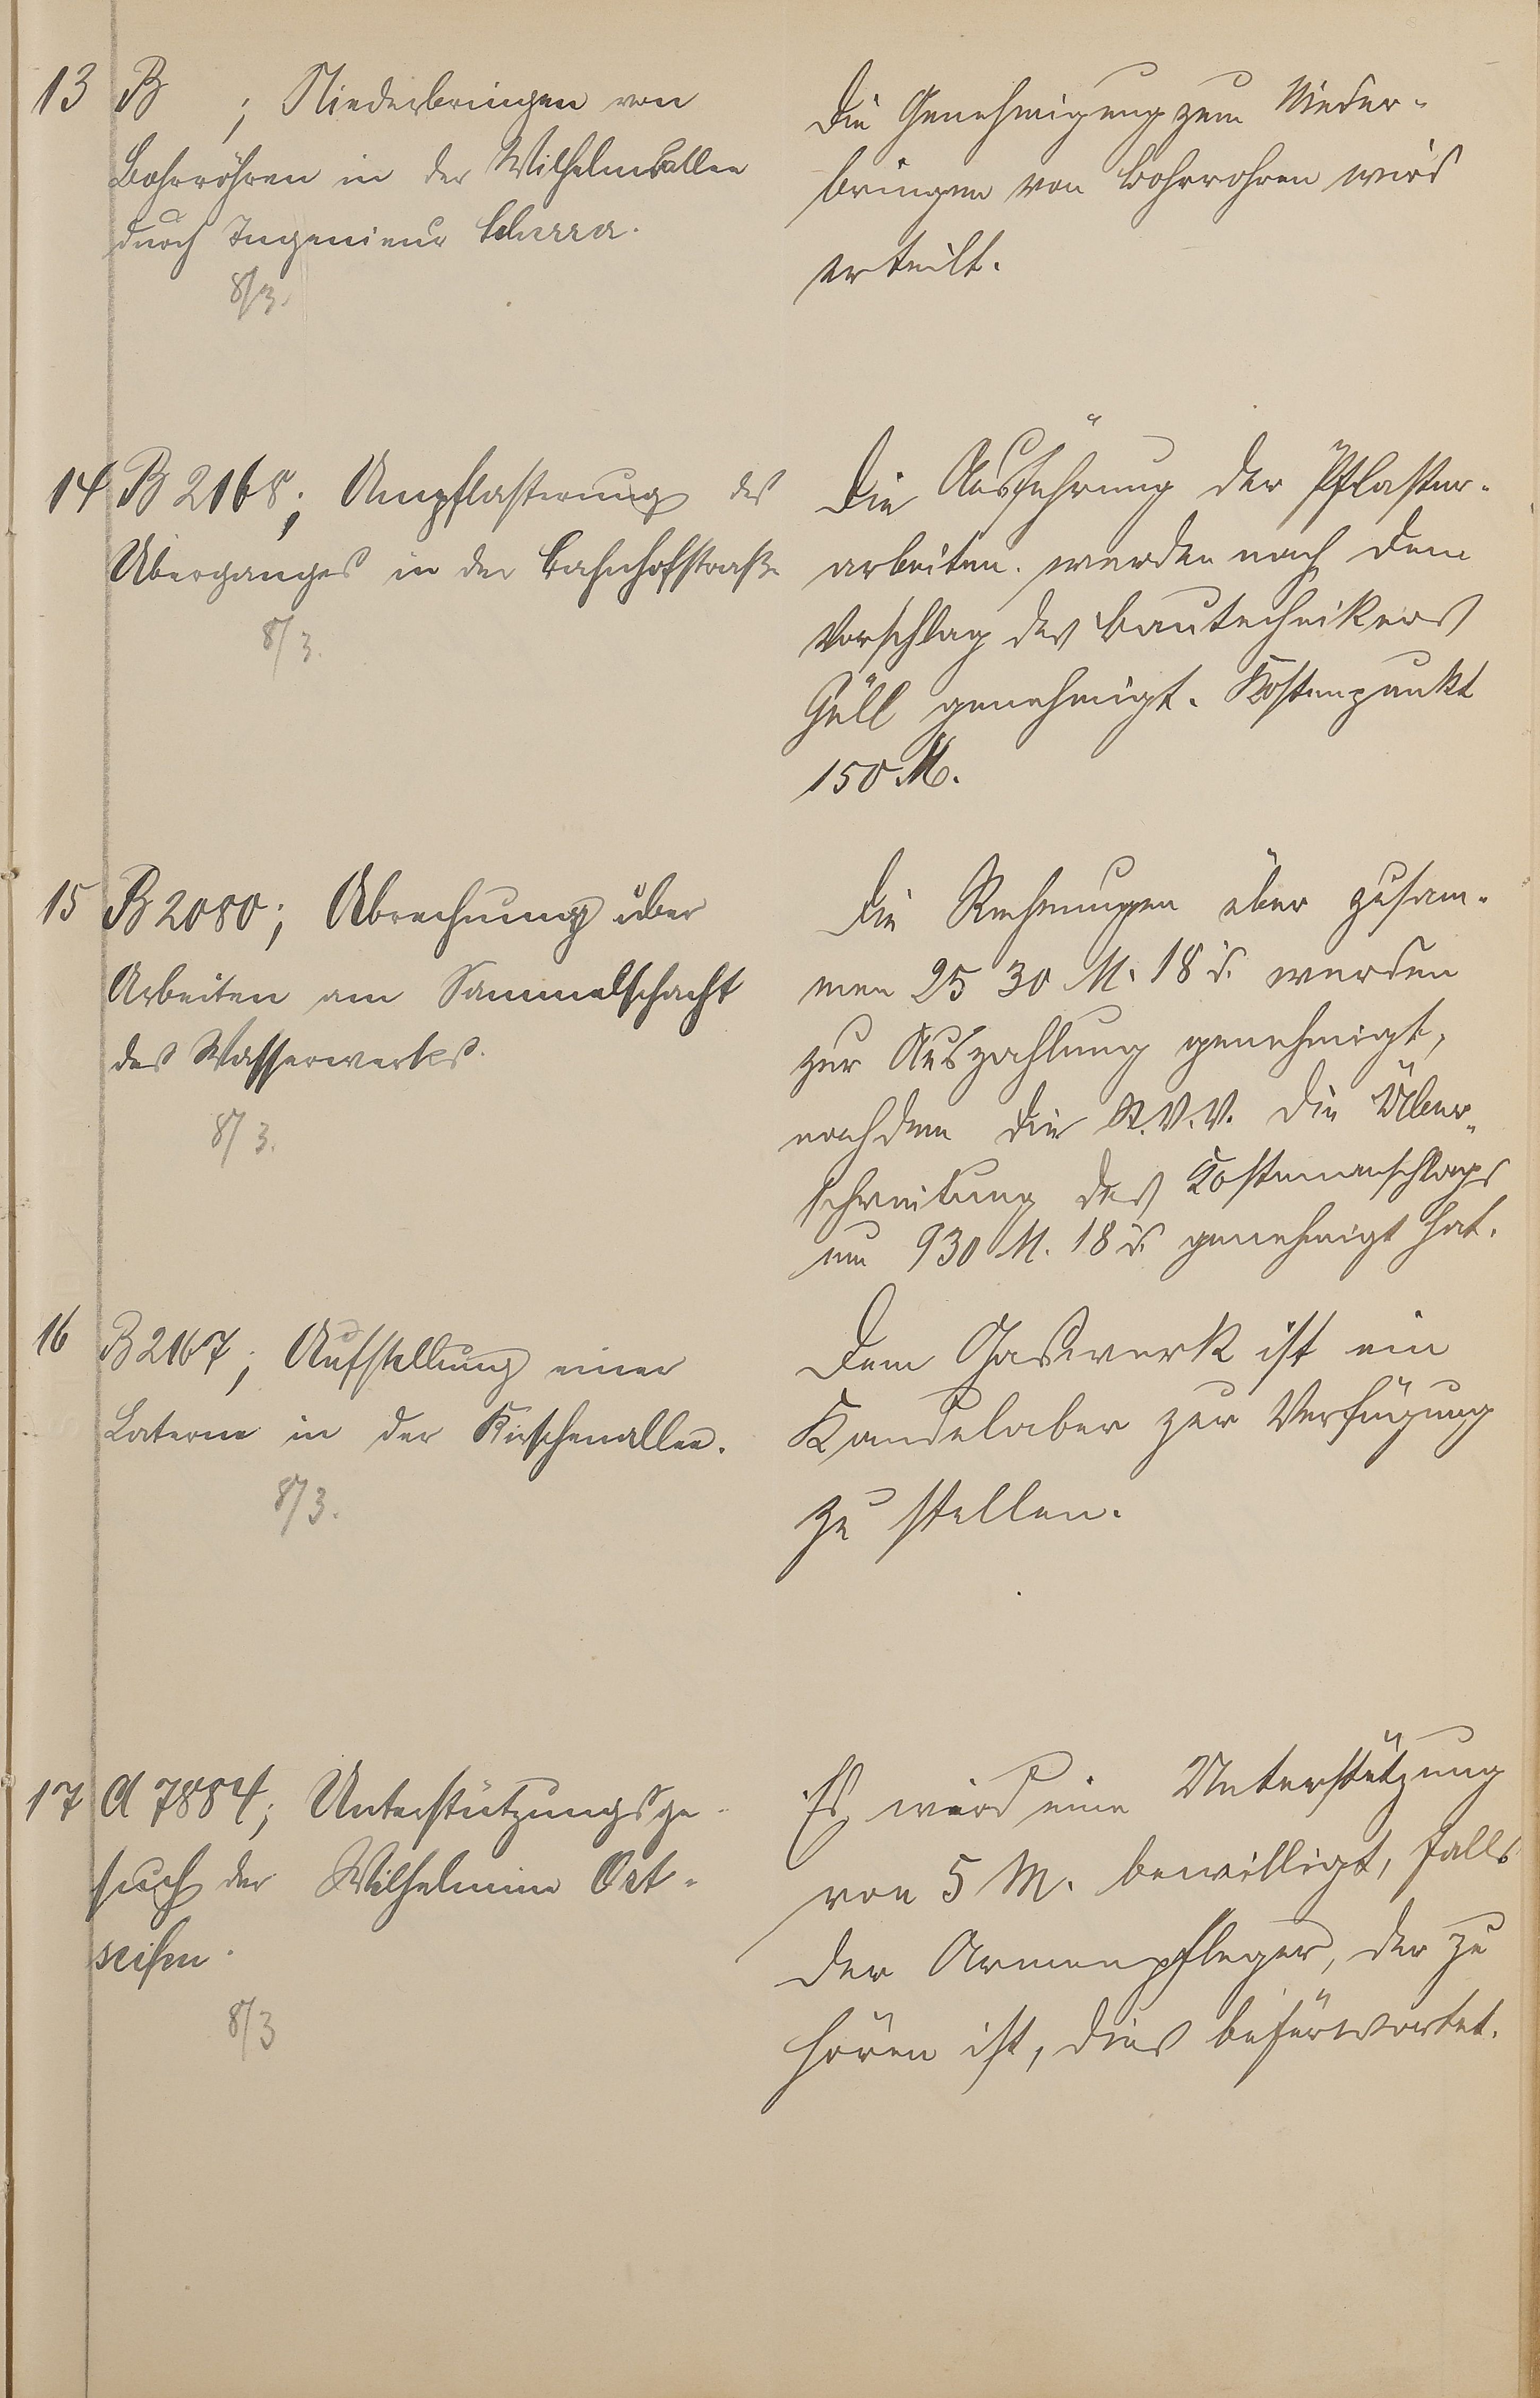 13 B ; Niederbringen von
Bohrröhren in der Wilhelmsallee
durch Ingenieur Scherrer.
8/3.
Die Genehmigung zum Nieder-
bringen von Bohrrohren wird
erteilt.
14 B 2168; Umpflasterung des
Überganges in der Bahnhofstraße
8/3.
Die Ausführung der Pflaster-
arbeiten werden nach dem
Vorschlag des Bautechnikers
Güll genehmigt. Kostenpunkt
150 M.
15 B 2080; Abrechnung über
Arbeiten am Sammelschacht
des Wasserwerks.
8/3.
Die Rechnungen über zusam-
men 2530 M. 18 d. werden
zur Auszahlung genehmigt,
nachdem die St.V.V. die Über-
schreitung des Kostenanschlags
um 930 M. 18 d. genehmigt hat.
16 B 2167; Aufstellung einer
Laterne in der Kirschenallee.
8/3.
Dem Gaswerk ist ein
Kandelaber zur Verfügung
zu stellen.
17 A 7884; Unterstützungsge-
such der Wilhelmine Ort-
seifen.
8/3
Es wird eine Unterstützung
von 5 M. bewilligt, falls
der Armenpfleger, der zu
hören ist, dies befürwortet.